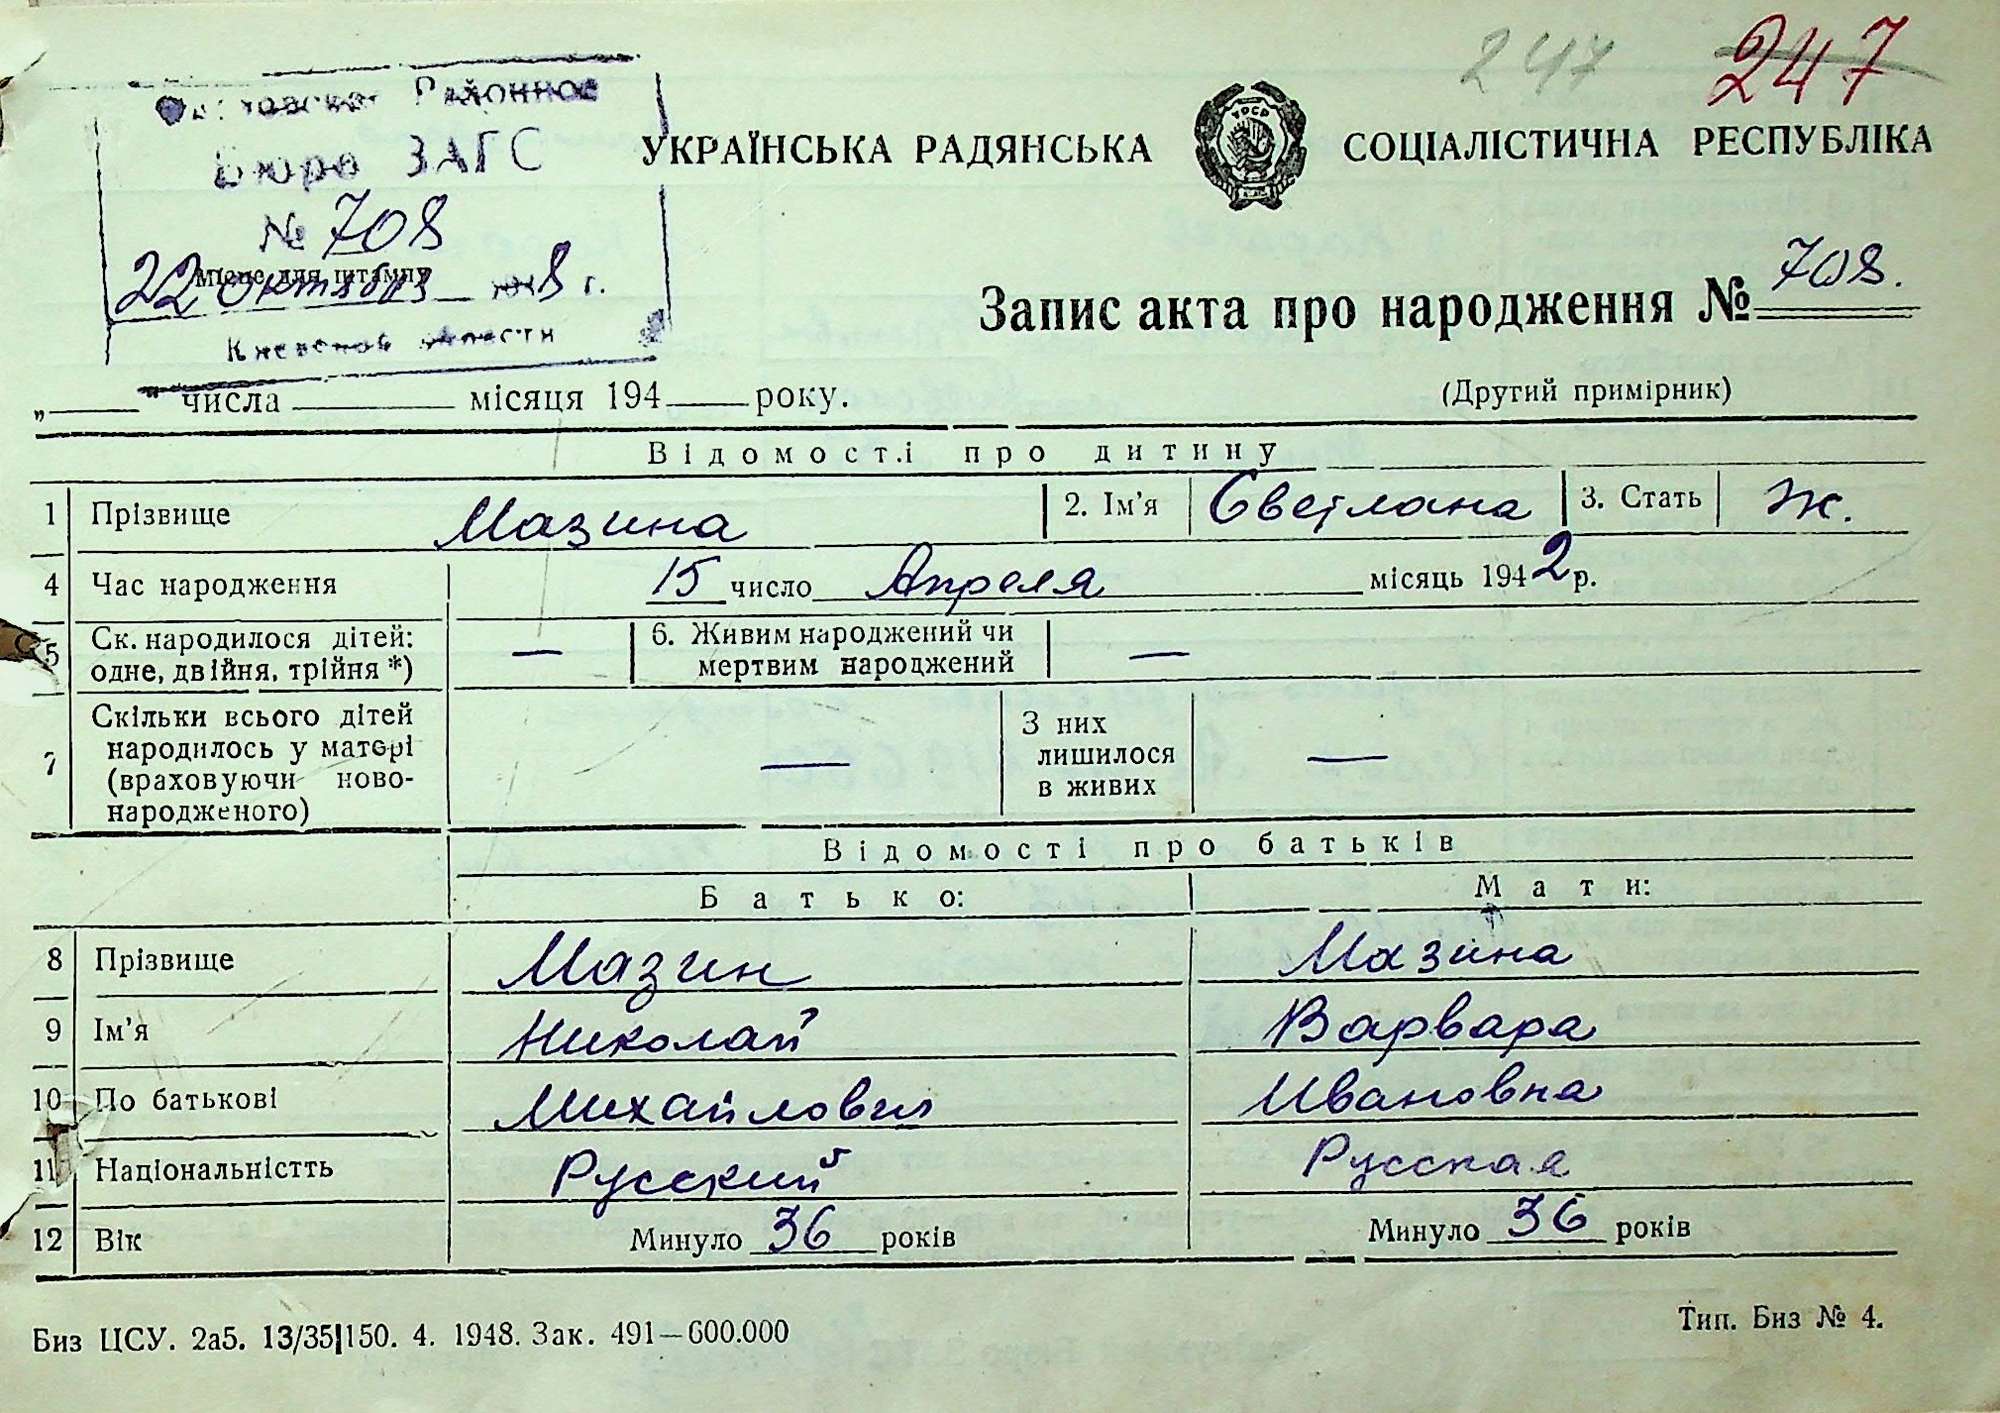 247 247
Районное
Бюро ЗАГС
УКРАЇНСЬКА РАДЯНСЬКА СОЦІАЛІСТИЧНА РЕСПУБЛІКА
УРСР
№ 708
місце для штампу
22 октября 1948 г.
Киевской области
Запис акта про народження № 708.
„ “ числа місяця 194 року.
(Другий примірник)
Відомості про дитину
1 Прізвище Мазина 2. Ім’я Светлана 3. Стать Ж.
4 Час народження 15 число Апреля місяць 1942 р.
5 Ск. народилося дітей: одне, двійня, трійня *) — 6. Живим народжений чи мертвим народжений —
7 Скільки всього дітей народилось у матері (враховуючи ново-народженого) — З них лишилося в живих —
Відомості про батьків
Батько: Мати:
8 Прізвище Мазин Мазина
9 Ім’я Николай Варвара
10 По батькові Михайлович Ивановна
11 Національністть Русский Русская
12 Вік Минуло 36 років Минуло 36 років
Биз ЦСУ. 2а5. 13/35|150. 4. 1948. Зак. 491—600.000
Тип. Биз № 4.